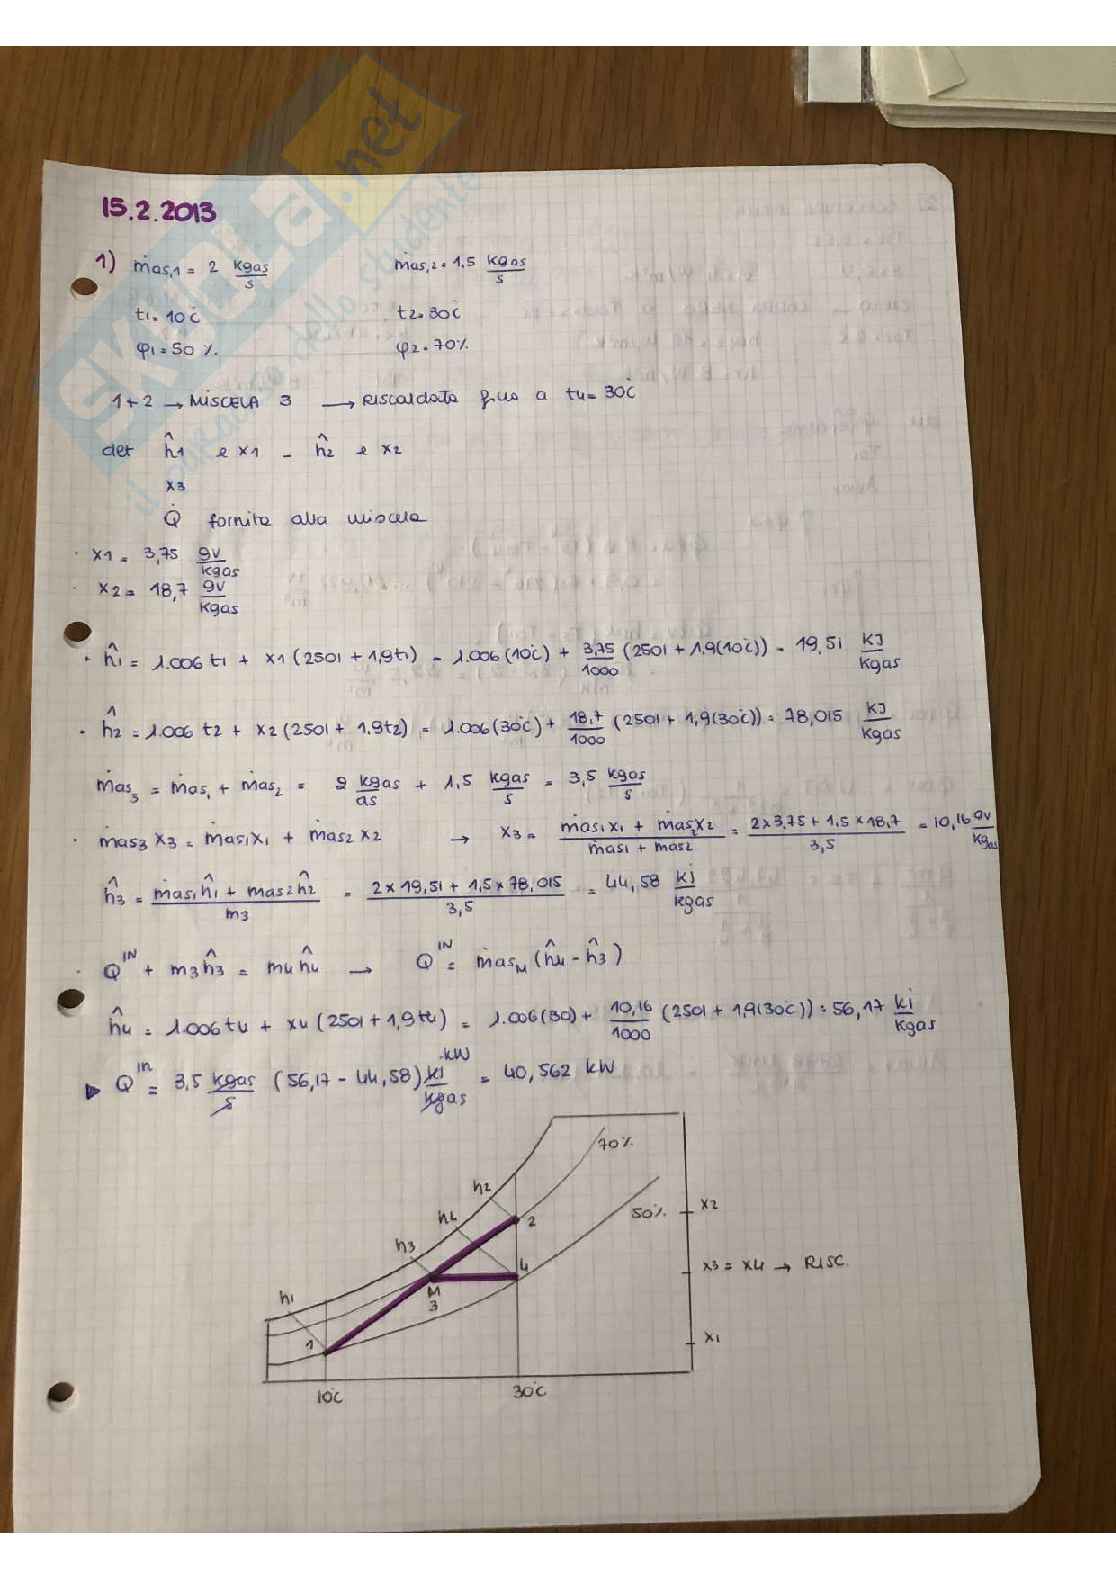 SKUOLA.net
il paradiso dello studente
15.2.2013
1) ṁas,1 = 2 kgas/s ṁas,2 = 1,5 kgas/s
t1 = 10°C t2 = 30°C
φ1 = 50 % φ2 = 70%
1+2 → MISCELA 3 → RISCALDATA fino a t4 = 30°C
det ĥ1 e x1 - ĥ2 e x2
x3
Q̇ fornita alla miscela
· x1 = 3,75 gv/kgas
· x2 = 18,7 gv/kgas
· ĥ1 = 1.006 t1 + x1 (2501 + 1,9t1) = 1.006 (10°C) + 3,75/1000 (2501 + 1,9(10°C)) = 19,51 KJ/kgas
· ĥ2 = 1.006 t2 + x2 (2501 + 1.9t2) = 1.006 (30°C) + 18,7/1000 (2501 + 1,9(30°C)) = 78,015 KJ/kgas
ṁas3 = ṁas1 + ṁas2 = 2 kgas/as + 1,5 kgas/s = 3,5 kgas/s
· ṁas3 x3 = ṁas1x1 + ṁas2 x2 → x3 = ṁas1x1 + ṁas2x2 / ṁas1 + mas2 = 2x3,75 + 1,5 x 18,7 / 3,5 = 10,16 gv/kgas
ĥ3 = ṁas1ĥ1 + mas2ĥ2 / m3 = 2x19,51 + 1,5x78,015 / 3,5 = 44,58 kj/kgas
· Q^IN + m3ĥ3 = m4ĥ4 → Q^IN = ṁasM (ĥ4 - ĥ3)
ĥ4 = 1.006 t4 + x4 (2501 + 1,9t4) = 1.006(30) + 10,16/1000 (2501 + 1,9(30°C)) = 56,17 kj/kgas
▶ Q^in = 3,5 kgas/s (56,17 - 44,58) kj/kgas · kW = 40,562 kW
70%
h2
50%
x2
h4
2
h3
4
x3 = x4 → RISC.
M
3
h1
x1
1
10°C 30°C